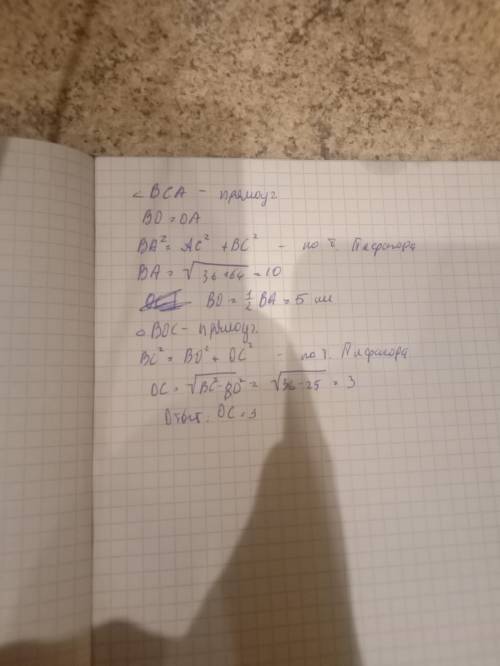 ∠ BCA - прямоуг.
BO = OA
BA² = AC² + BC² - по т. Пифагора
BA = √36+64 = 10
BO = ½ BA = 5 см
△ BOC - прямоуг.
BC² = BO² + OC² - по т. Пифагора
OC = √BC² - BO² = √36-25 = 3
Ответ. OC = 3